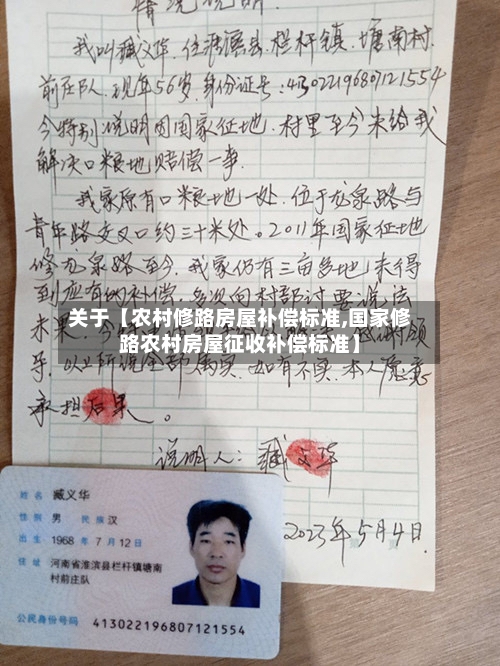 情况说明
我叫臧义华.住淮滨县.栏杆镇.塘南村.
前庄队.现年56岁.身份证号:413022196807121554
今特别说明因国家征地.村里至今未给我
解决口粮地赔偿一事.
我家原有口粮地一处.位于龙泉路与
青年路交叉口约三十米处。2011年国家征地
修龙泉路至今.我家仍有三亩多地未得
到应有的补偿.多次向村部讨要说法
未果.今
关于【农村修路房屋补偿标准,国家修
路农村房屋征收补偿标准】
导.以上所说全部属实.如有不实.本人愿意
承担后果。
说明人:臧义华
2023年5月4日.
姓名 臧义华
性别 男 民族 汉
出生 1968 年 7 月 12 日
住址 河南省淮滨县栏杆镇塘南
村前庄队
公民身份号码 413022196807121554